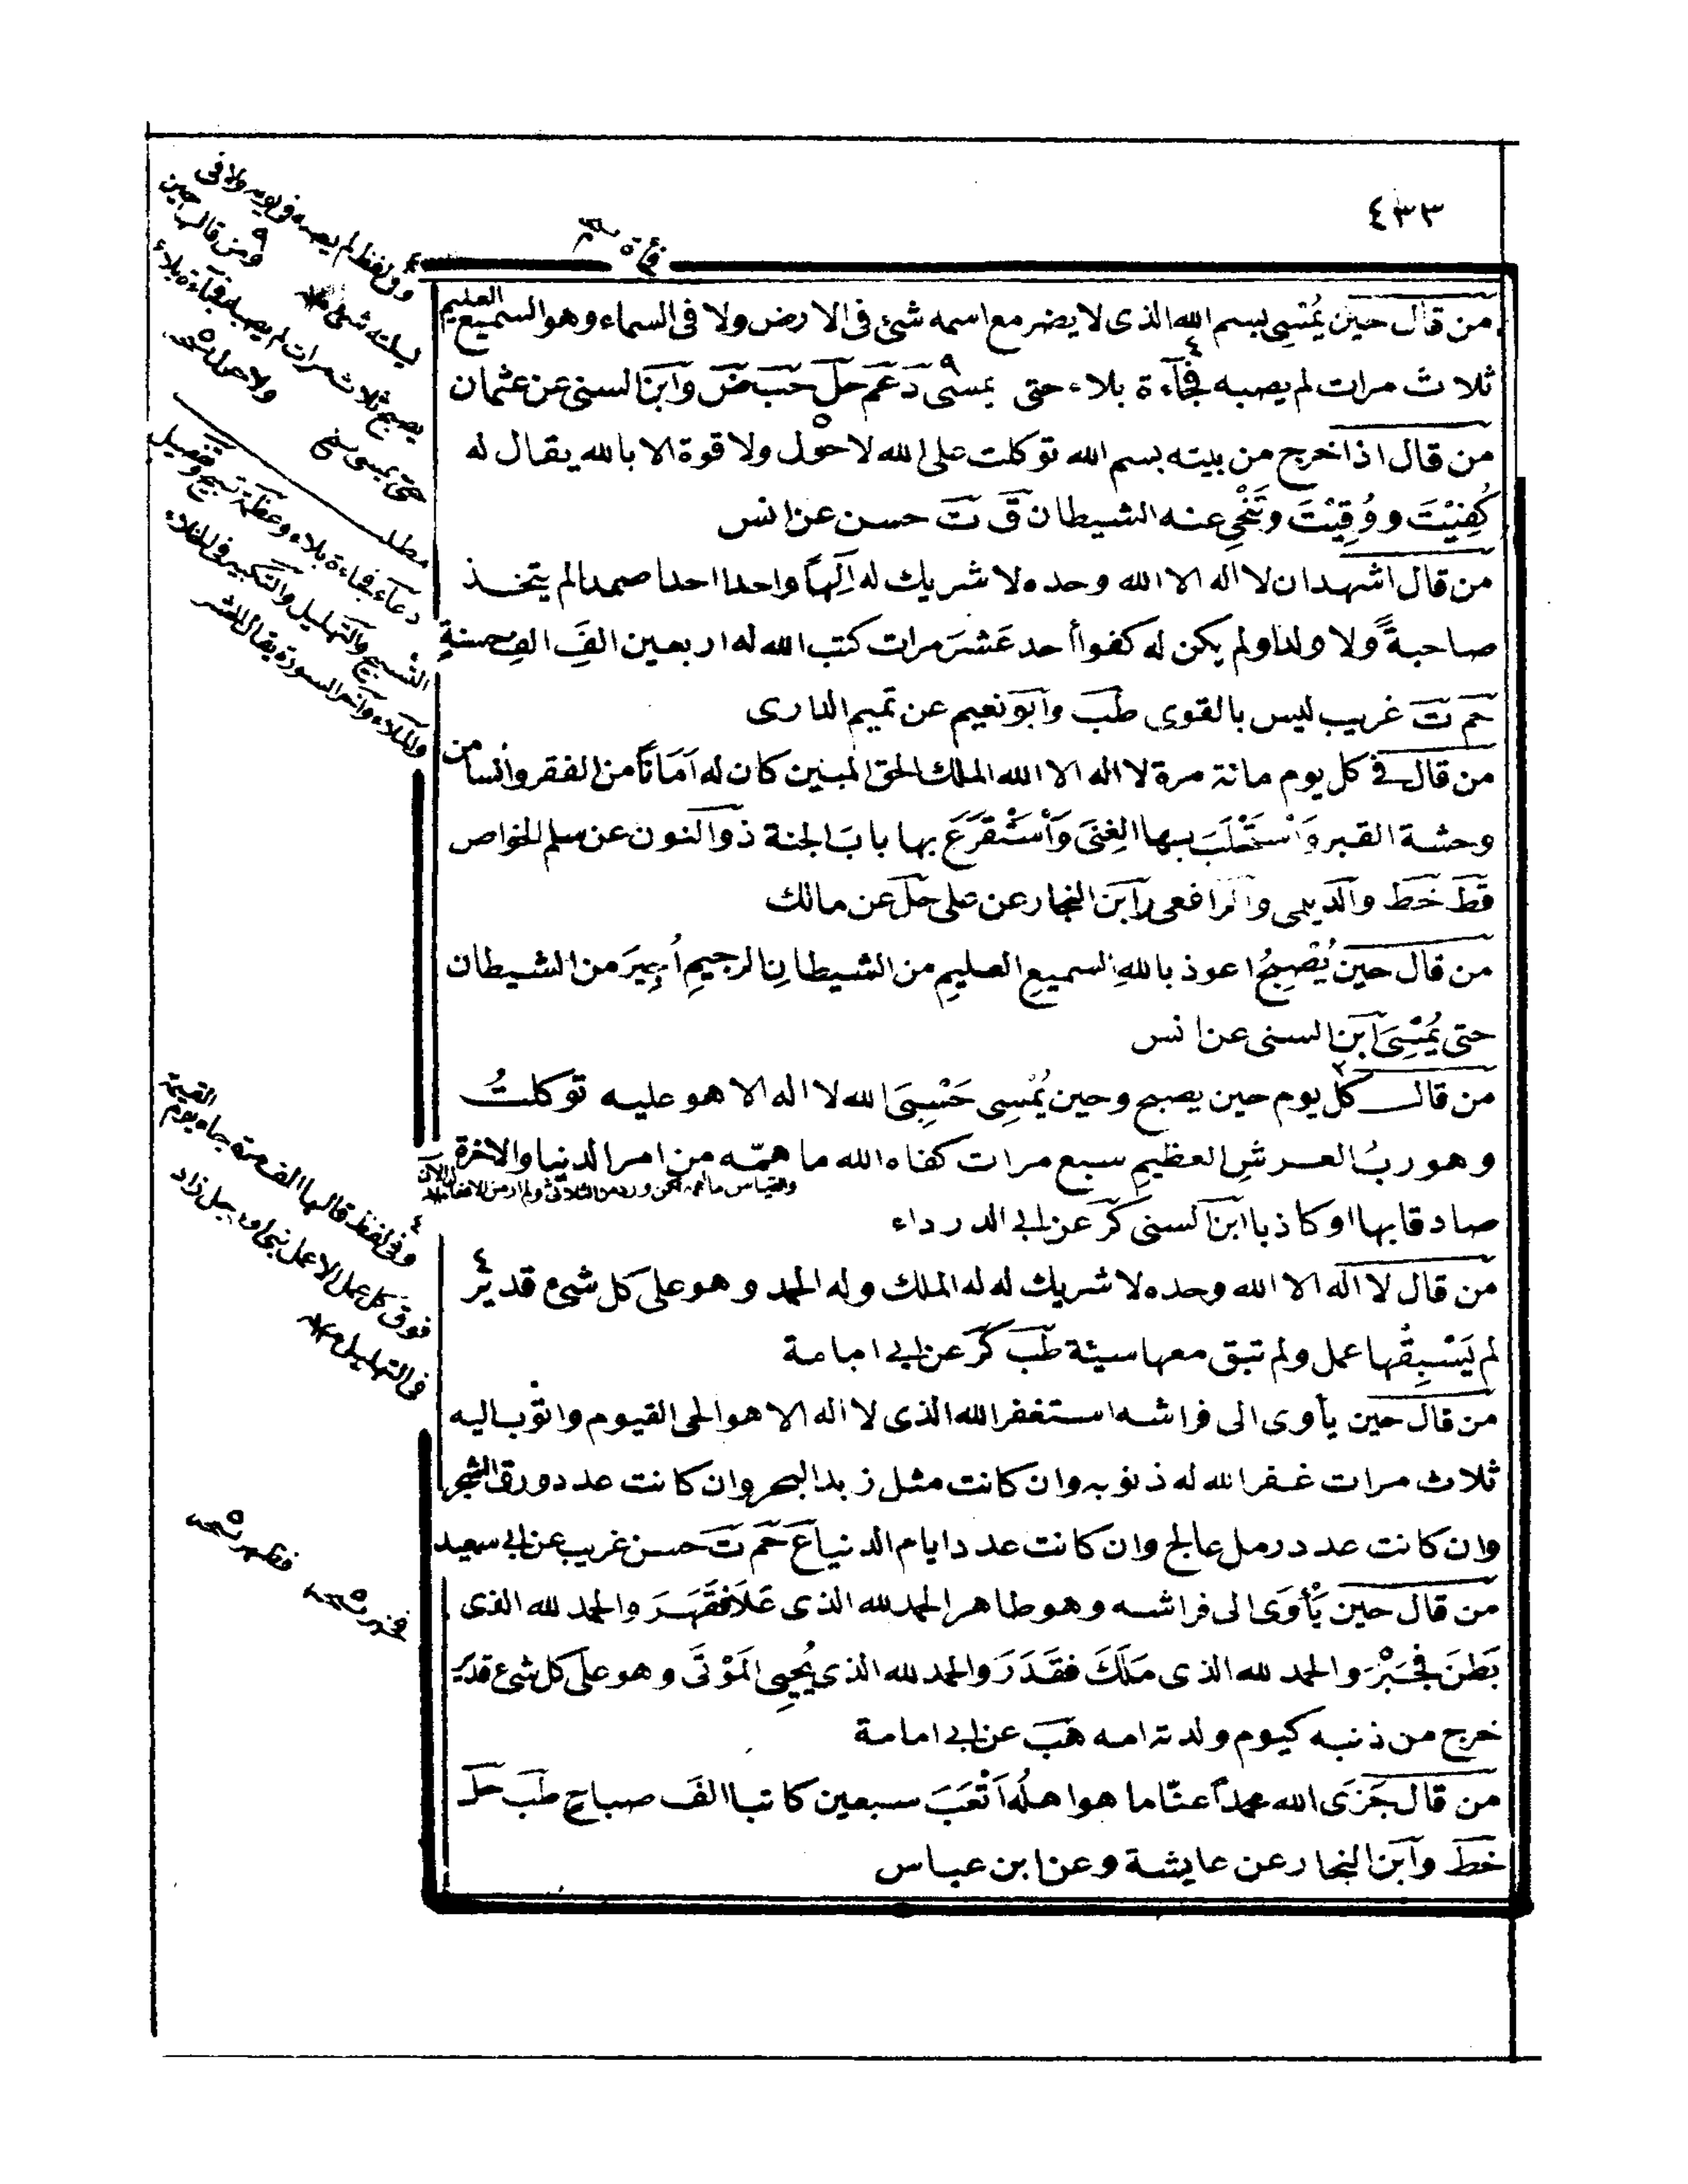 ٤٣٣
فجأة نسخه
من قال حين يُمْسِى بسم الله الذى لا يضر مع اسمه شئ فى الارض ولا فى السماء وهو السميع العليم
ثلاث مرات لم يصبه فجآءة بلاء حتى يمسى د عم حل حب ض وابن السنى عن عثمان
من قال اذا خرج من بيته بسم الله توكلت على الله لا حول ولا قوة الا بالله يقال له
كُفِيْتَ ووُقِيْتَ وتَنَحّى عنه الشيطان ق ت حسن عن انس
من قال اشهد ان لا اله الا الله وحده لا شريك له اِلَهاً واحدا احدا صمدا لم يتخذ
صاحبةً ولا ولدا ولم يكن له كفوا أحد عَشَرَ مرات كتب الله له اربعين الفَ الفِ حسنةٍ
حم ت غريب ليس بالقوى طب وابو نعيم عن تميم الدارى
من قال فى كل يوم مائة مرة لا اله الا الله الملك الحق المبين كان له اَمَاناً من الفقر وانسا من
وحشة القبر وَاسْتَجْلَبَ بها الغِنَى وَاْسْتَقْرَعَ بها بابَ الجنة ذو النون عن سلم الخواص
قط خط والديلمى والرافعى وابن النجار عن على حل عن مالك
من قال حين يُصْبِحُ اعوذ باللهِ السميعِ العليمِ من الشيطانِ الرجيمِ اُجِيرَ من الشيطان
حتى يُمْسِىَ ابن السنى عن انس
من قال كل يوم حين يصبح وحين يُمْسِى حَسْبِىَ الله لا اله الا هو عليه توكلتُ
وهو ربُ العرشِ العظيمِ سبع مرات كفاه الله ما همّه من امر الدنيا والاخرة
صادقا بها او كاذبا ابن السنى كر عن ابى الدرداء
من قال لا اله الا الله وحده لا شريك له له الملك وله الحمد وهو على كل شئ قدير
لم يَسْبِقُها عمل ولم تبق معها سيئة طب كر عن ابى امامة
من قال حين يأوى الى فراشه استغفر الله الذى لا اله الا هو الحى القيوم واتوب اليه
ثلاث مرات غفر الله له ذنوبه وان كانت مثل زبد البحر وان كانت عدد ورق الشجر
وان كانت عدد رمل عالج وان كانت عدد ايام الدنيا ع حم ت حسن غريب عن ابى سعيد
من قال حين يَأْوَى الى فراشه وهو طاهر الحمد لله الذى عَلَا فَقَهَرَ والحمد لله الذى
بَطَنَ فخَبَرَ والحمد لله الذى مَلَكَ فقَدَرَ والحمد لله الذى يُحْيِى المَوْتَى وهو على كل شئ قدير
خرج من ذنبه كيوم ولدته امه هب عن ابى امامة
من قال جَزَى الله محمداً عنّا ما هو اهلُه اَتْعَبَ سبعين كاتبا الفَ صباحٍ طب حل
خط وابن النجار عن عايشة وعن ابن عباس
وفى لفظ لم يصبه فى يومه ولا فى
ليلته شئ
ومن قالها حين
يصبح ثلاث مرات لم يصبه فجآءة بلاء
حتى يمسى
ولا حول نسخه
مطلب
دعآء فجاءة بلاء وعظمة تسبيح وتفصيل
التسبيح والتهليل والتكبير فى الخلاء
والملاء وآخر السورة يقال للشر
وفى لفظ قالها الف مرة جاء يوم القيمة
فوق كل عمل الا عمل نبى او رجل زاد
فى التهليل
فقهر نسخه
فخبر نسخه